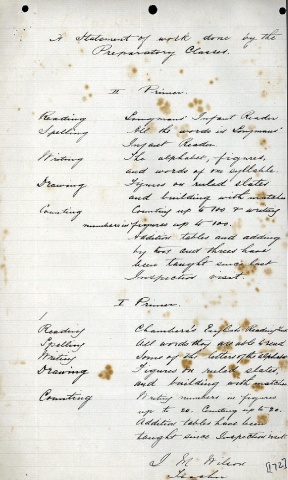 A Statement of work done by the
Preparatory Classes.
II Primer.
Reading Longmans' Infant Reader
Spelling All the words in Longmans'
Infant Reader.
Writing The alphabet, figures,
and words of one syllable.
Drawing Figures on ruled slates
and building with matches
Counting Counting up to 100 & writing
numbers in figures up to 100.
Addition tables and adding
by twos and threes have
been taught since last
Inspection visit.
I Primer.
Reading Chambers's English Reading
Spelling All words they are able to read
Writing Some of the letters of the alphabet
Drawing Figures on ruled slates,
and building with matches
Counting Writing numbers in figures
up to 20. Counting up to 20.
Addition tables have been
taught since Inspection visit.
Wilson
Teacher
[172]